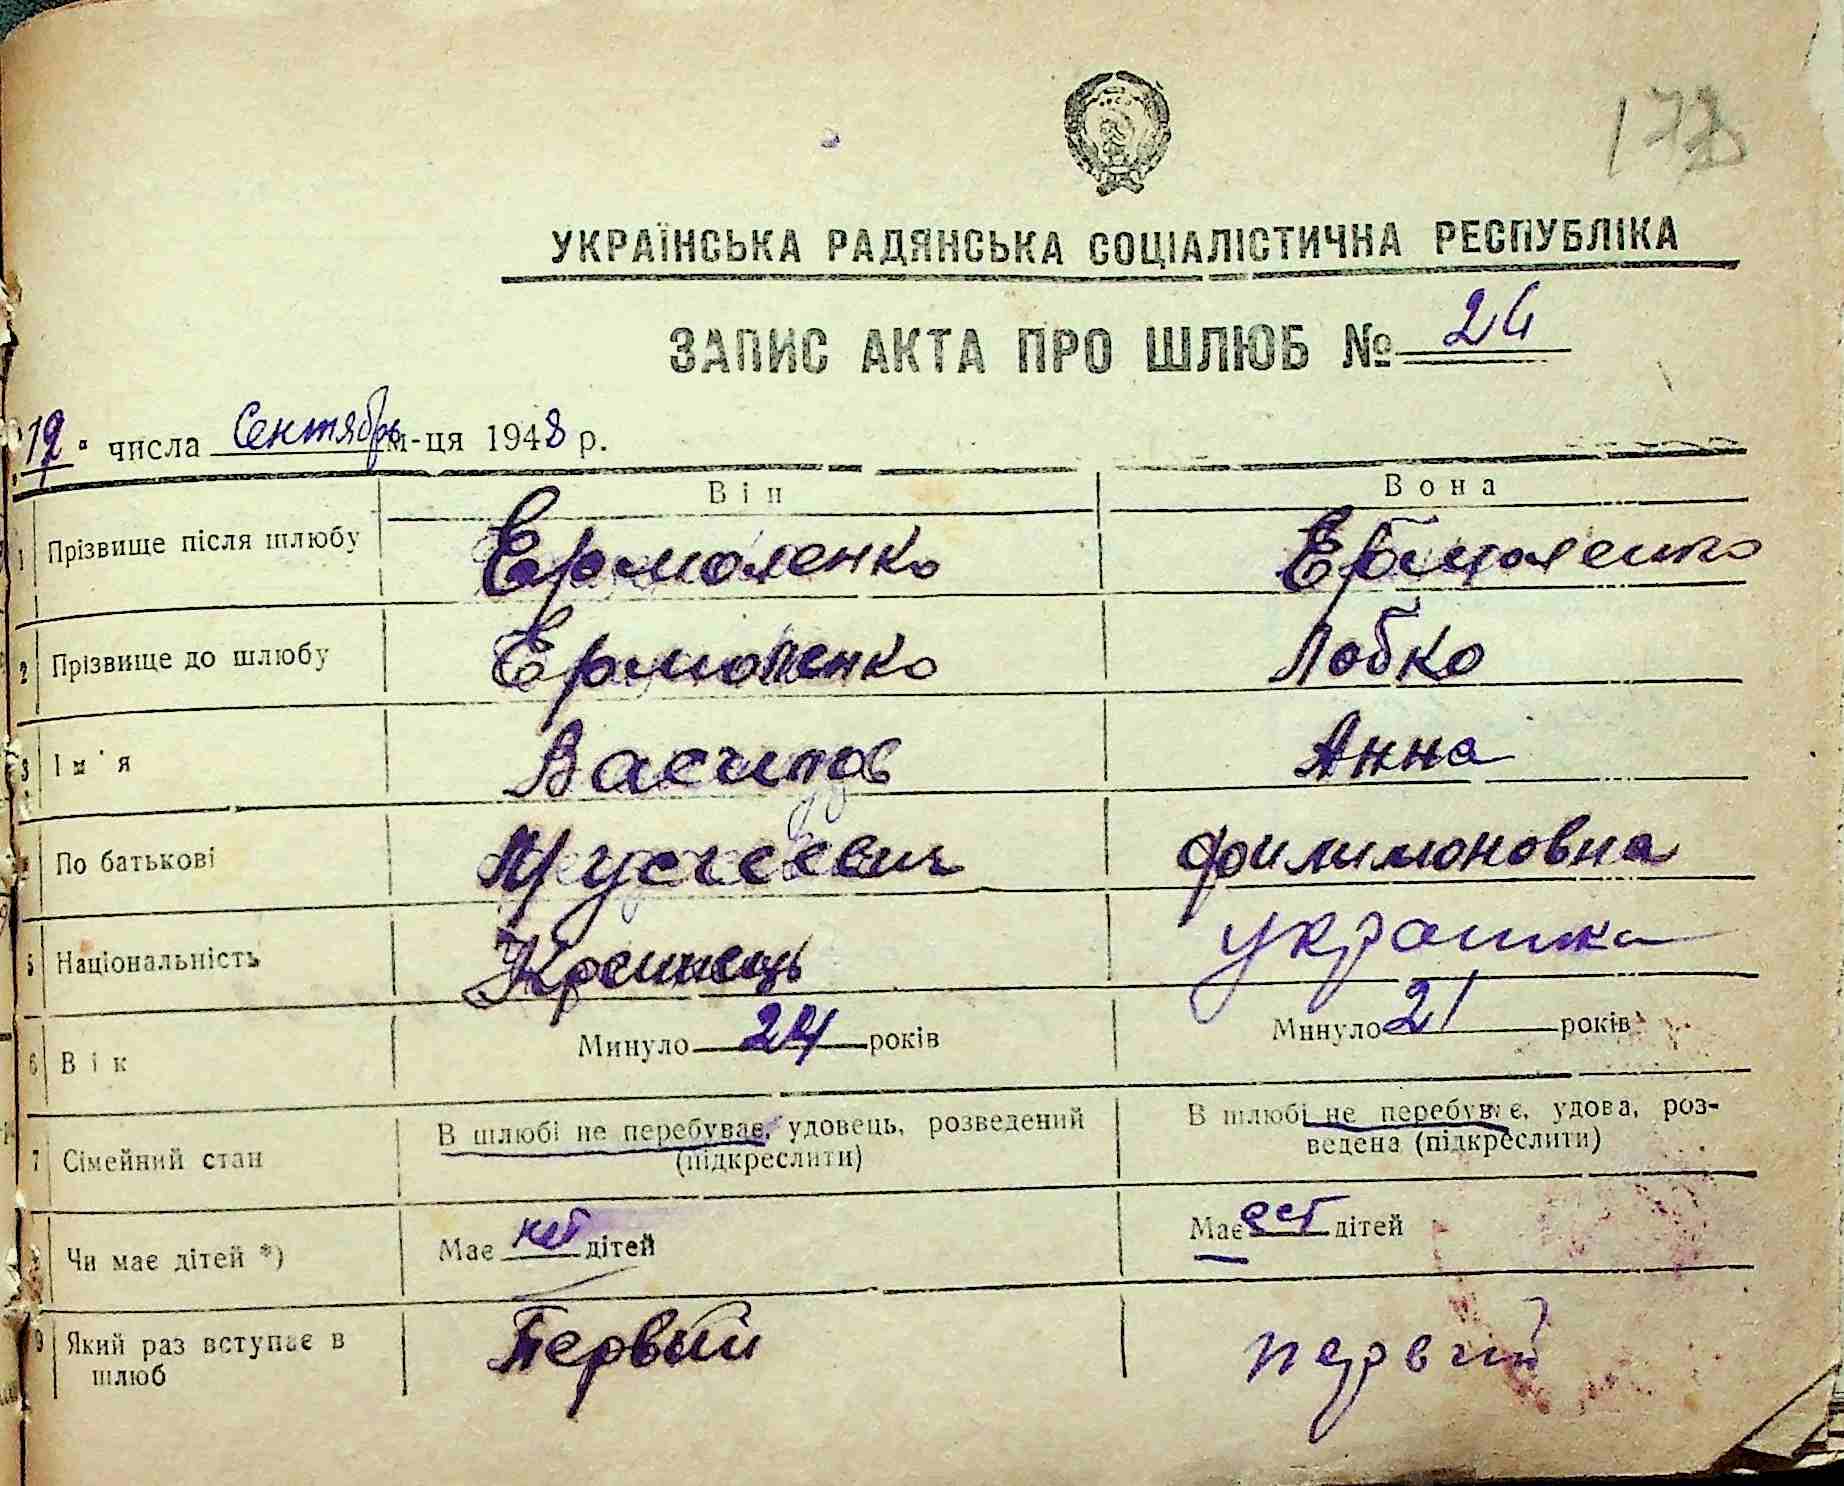 172
УКРАЇНСЬКА РАДЯНСЬКА СОЦІАЛІСТИЧНА РЕСПУБЛІКА
ЗАПИС АКТА ПРО ШЛЮБ № 24
19 числа Сентябрь м-ця 1948 р.
Він Вона
1 Прізвище після шлюбу Ермоленко Ермоленко
2 Прізвище до шлюбу Ермоленко Лобко
3 Ім'я Анна
По батькові Филимоновна
5 Національність Украинець украинка
6 Вік Минуло 24 років Минуло 21 років
7 Сімейний стан В шлюбі не перебуває, удовець, розведений В шлюбі не перебуває, удова, роз-
(підкреслити) ведена (підкреслити)
Чи має дітей *) Має нет дітей Має ест дітей
9 Який раз вступає в Первый первий
шлюб